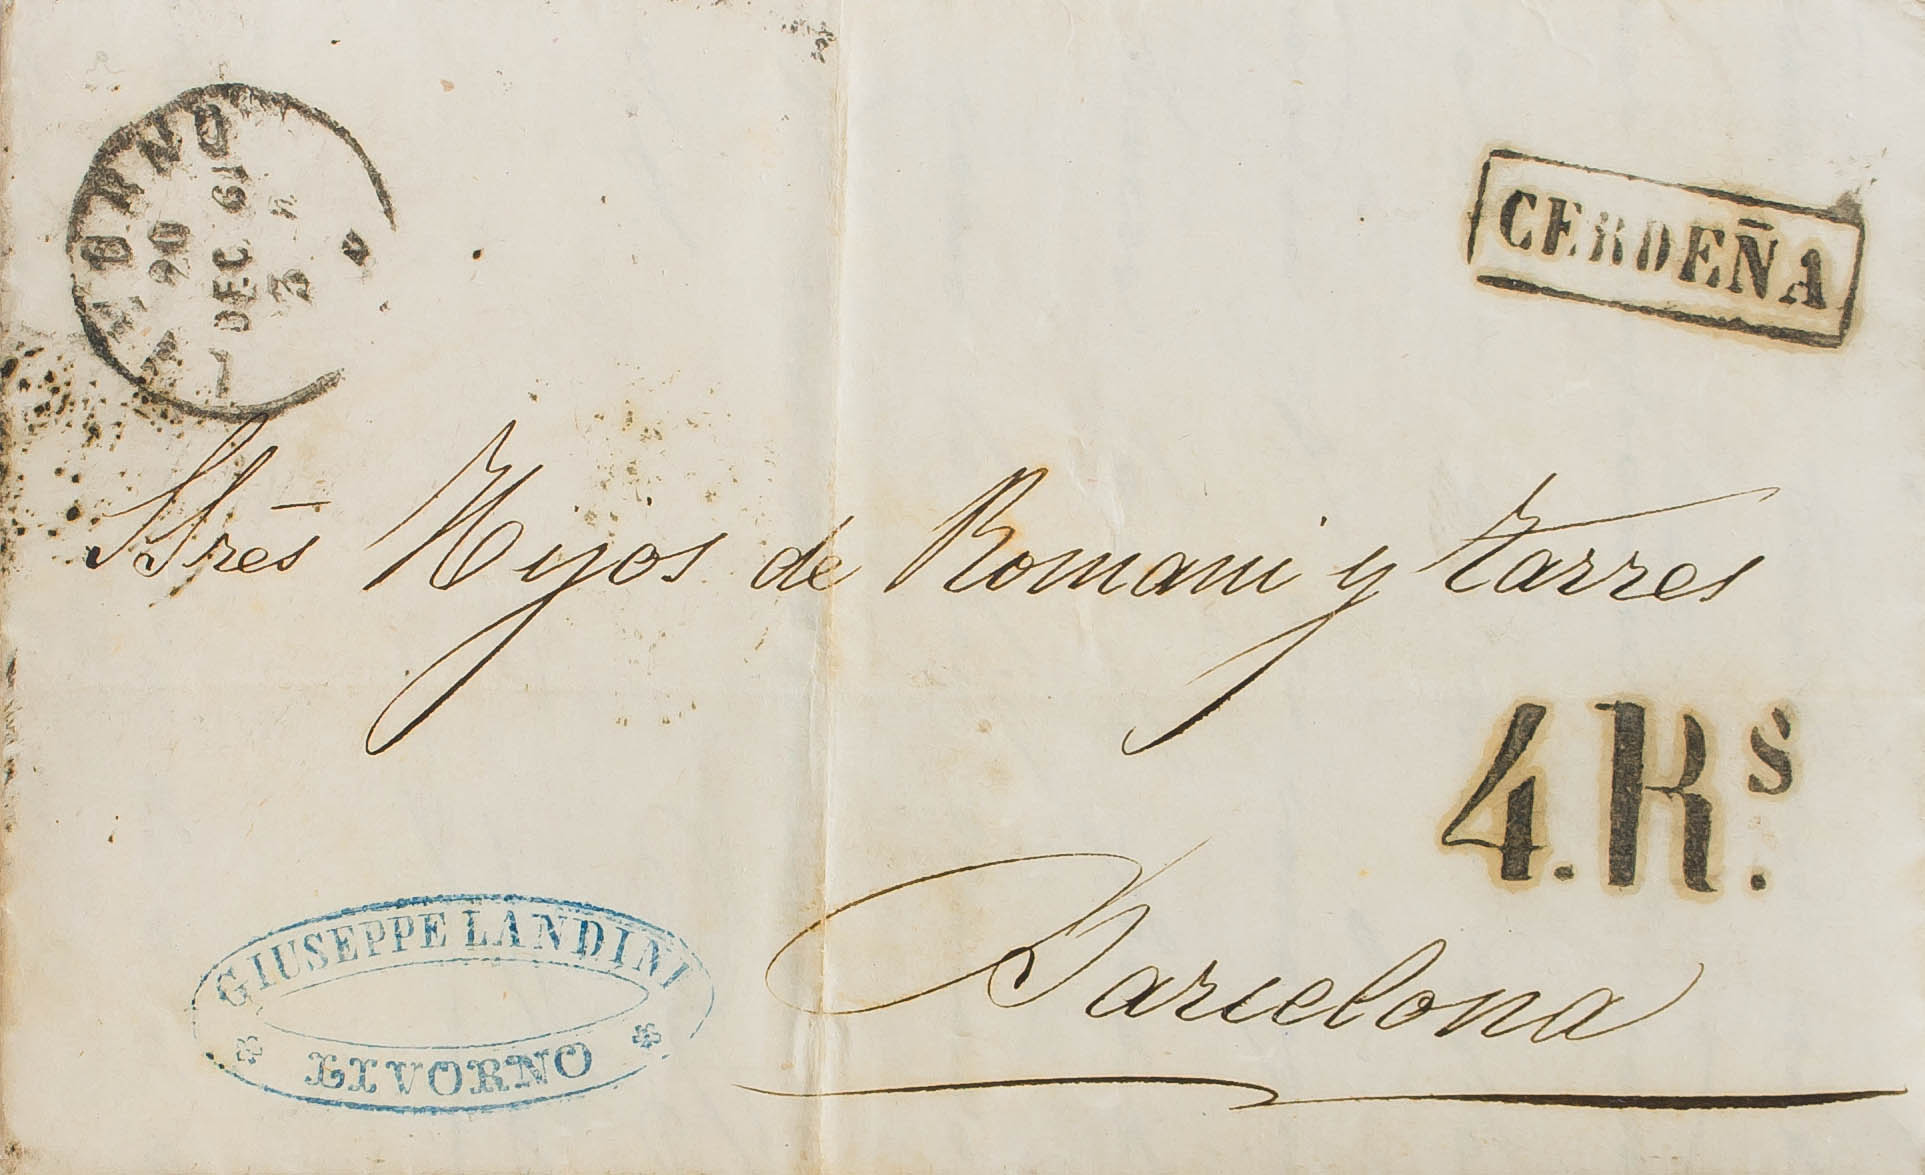 LIVORNO
20
DEC 61
3
CERDEÑA
SSres Hijos de Romani y Tarres
4.Rs.
Barcelona
GIUSEPPE LANDINI
LIVORNO